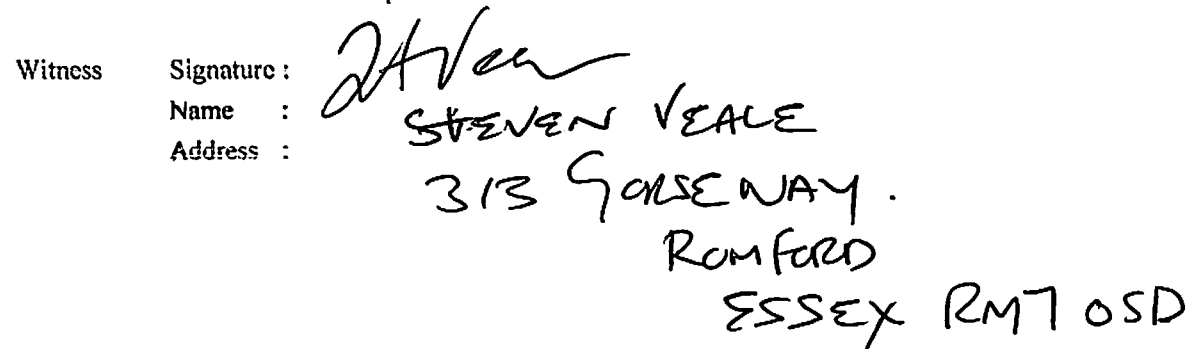 Witness Signature :
Name : STEVEN VEALE
Address :
313 GORSEWAY.
ROMFORD
ESSEX RM7 0SD